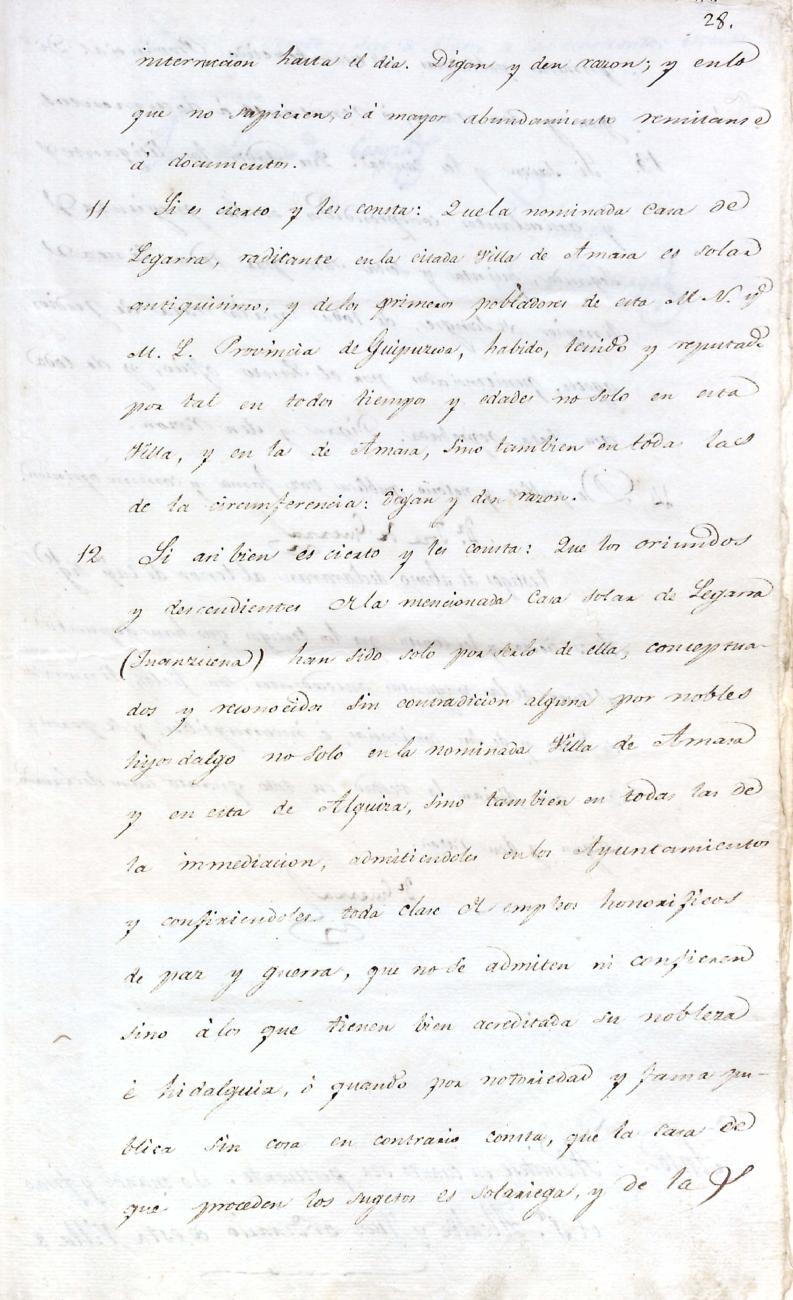 28.
interrucion hasta el dia. Digan y den razon; y en lo
que no supieren, ó á mayor abundamiento remitanse
á documentos.
11 Si es cierto y les consta: Que la nominada Casa de
Legarra, radicante en la citada Villa de Amasa es solar
antiquisimo, y de los primeros pobladores de esta M. N. y
M. L. Provincia de Guipuzcoa, habido, tenido y reputado
por tal en todos tiempos y edades no solo en esta
Villa, y en la de Amasa, sino tambien en todas las
de la circumferencia: digan y den razon.
12 Si asi bien es cierto y les consta: Que los oriundos
y descendientes de la mencionada Casa solar de Legarra
(Juanziena) han sido solo por serlo de ella, conceptua-
dos y reconocidos sin contradicion alguna por nobles
hijosdalgo no solo en la nominada Villa de Amasa
y en esta de Alquiza, sino tambien en todas las de
la inmediacion, admitiendoles en los Ayuntamientos
y confiriendoles toda clase de empleos honorificos
de paz y guerra, que no se admiten ni confieren
sino à los que tienen bien acreditada su nobleza
è hidalguia, ó quando por notoriedad y fama pu-
blica sin cosa en contrario consta, que la casa de
que proceden los sugetos es solariega, y de las